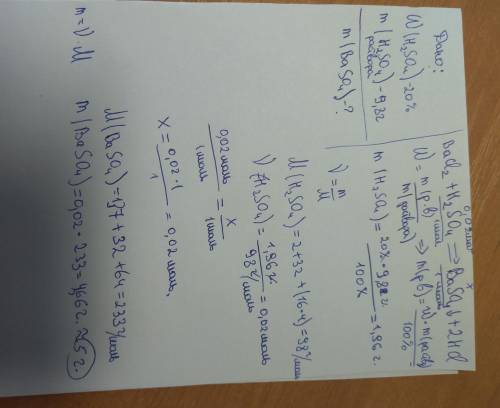 Дано:
W(H₂SO₄)-20%
m(H₂SO₄)-9,8г
раствора
m(BaSO₄)-?
0,02моль x
BaCl₂ + H₂SO₄ ⟹ BaSO₄↓ + 2HCl
1моль 1моль
W = m(р.в) / m(раствора) ⟹ m(рв) = W·m(раств) / 100% =
m(H₂SO₄) = 20%·9,8г / 100% = 1,96г.
ν = m/M
M(H₂SO₄) = 2+32+(16·4) = 98г/моль
ν(H₂SO₄) = 1,96г / 98г/моль = 0,02моль
0,02моль / 1моль = x / 1моль
x = 0,02·1 / 1 = 0,02моль.
M(BaSO₄) = 137+32+64 = 233г/моль
m = ν·M m(BaSO₄) = 0,02·233 = 4,66г. ≈5г.